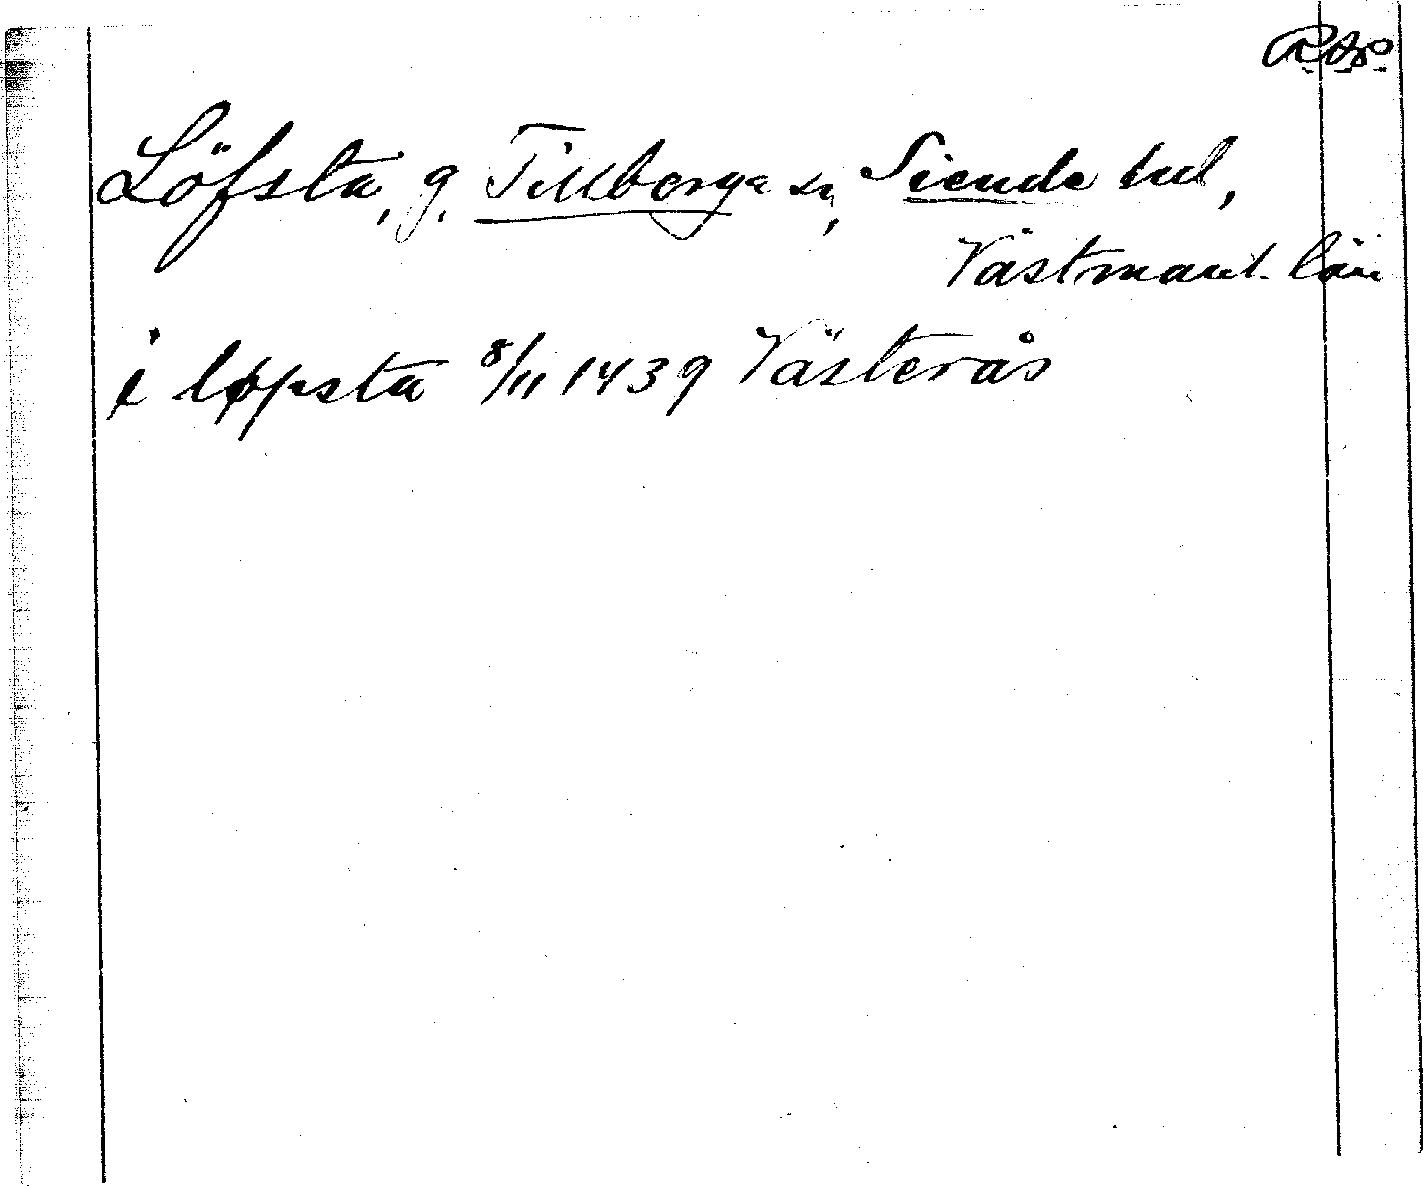 RAp
Löfsta, g. Tillberga sn, Siende hd,
Västmanl. län
i løpsta 8/11 1439 Västerås